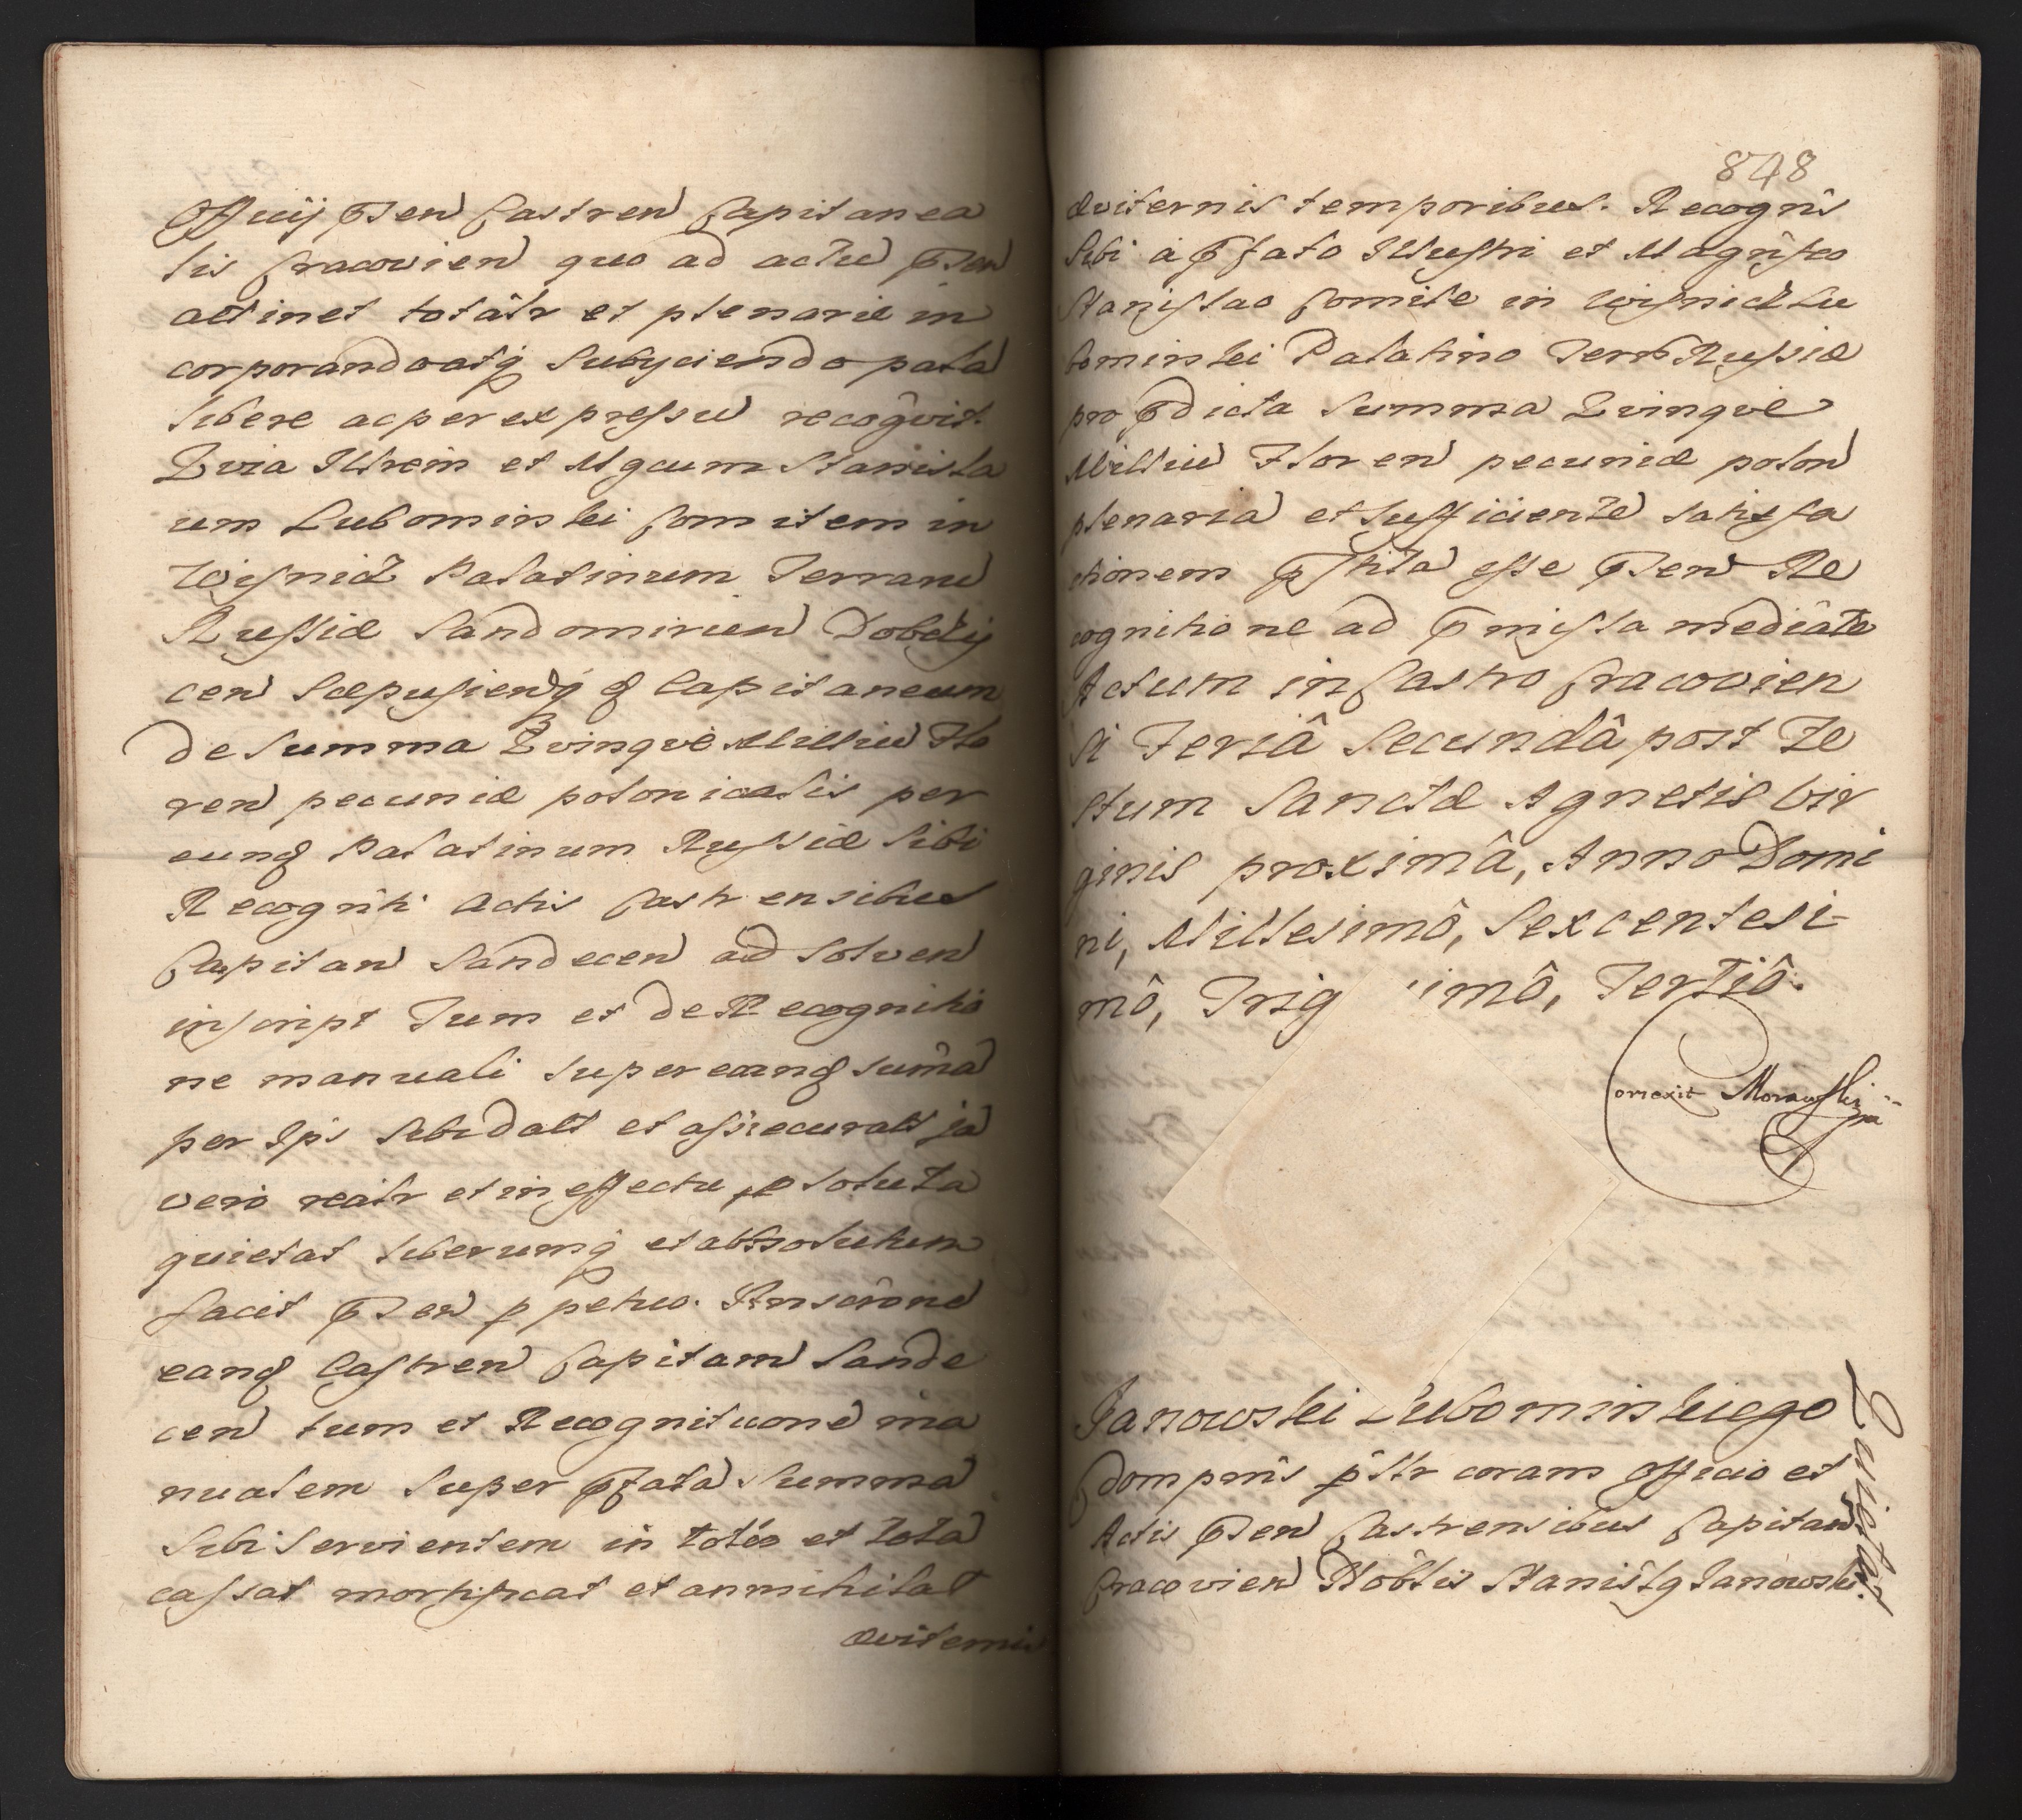 Officij pn̄sen Castren Capitanea
lis Cracovien quo ad actū pn̄sen
attinet totālr et plenarie in
corporando atq subyciendo pala
libere ac per expressū recoḡvit.
Qvia Illrem et Mgcum Stanisla
um Lubominski Comitem in
Wisnicz Palatinum Terrarū
Russiæ Sandomirien Dobczy
cen Scepusien q & Capitaneum
de Summa Qvinqve Milliū Flo
ren pecuniæ polonicalis per
eund Palatinum Russiæ Sibi
Recogniti Actis Castrensibus
Capitan Sandecen ad Solven
inscript Tum et de Recognitio
ne manuali super eand sum̄a
per Ips Sibi dat et assecurat ja
vero realr et in effectu soluta
quietat liberumq et absolutum
facit pn̄sen ppetuo. Inscrōne
eand Castren Capitan Sande
cen tum et Recognitione ma
nualem super pfata Summa
Sibi Servientem in toto et tota
cassat mortificat et annihilat
æviternis
848
æviternis temporibus. Recogn̄s
Sibi a pfato Illustri et Magnifco
Stanislao Comite in Wisnicz Lu
bominski Palatino Terrar Russiæ
pro pdicta Summa Qvinqve
Milliū Floren pecuniæ polon
plenaria et sufficiente satisfa
ctionem esse pn̄sen Re
cognitione ad pmissa mediāte
Actum in Castro Cracovien
si Feriâ Secundâ post Fe
stum Sanctæ Agnetis Vir
ginis proximâ, Anno Domi
ni, Millesimô, Sexcentesi-
mô, Trig imô, Tertiô.
Correxit Morawski
Janowski Lubominskiego
Quietat
Comparn̄s psltr coram Officio et
Actis pn̄sen Castrensibus Capitan
Cracovien Nōblis Stanislg Janowski